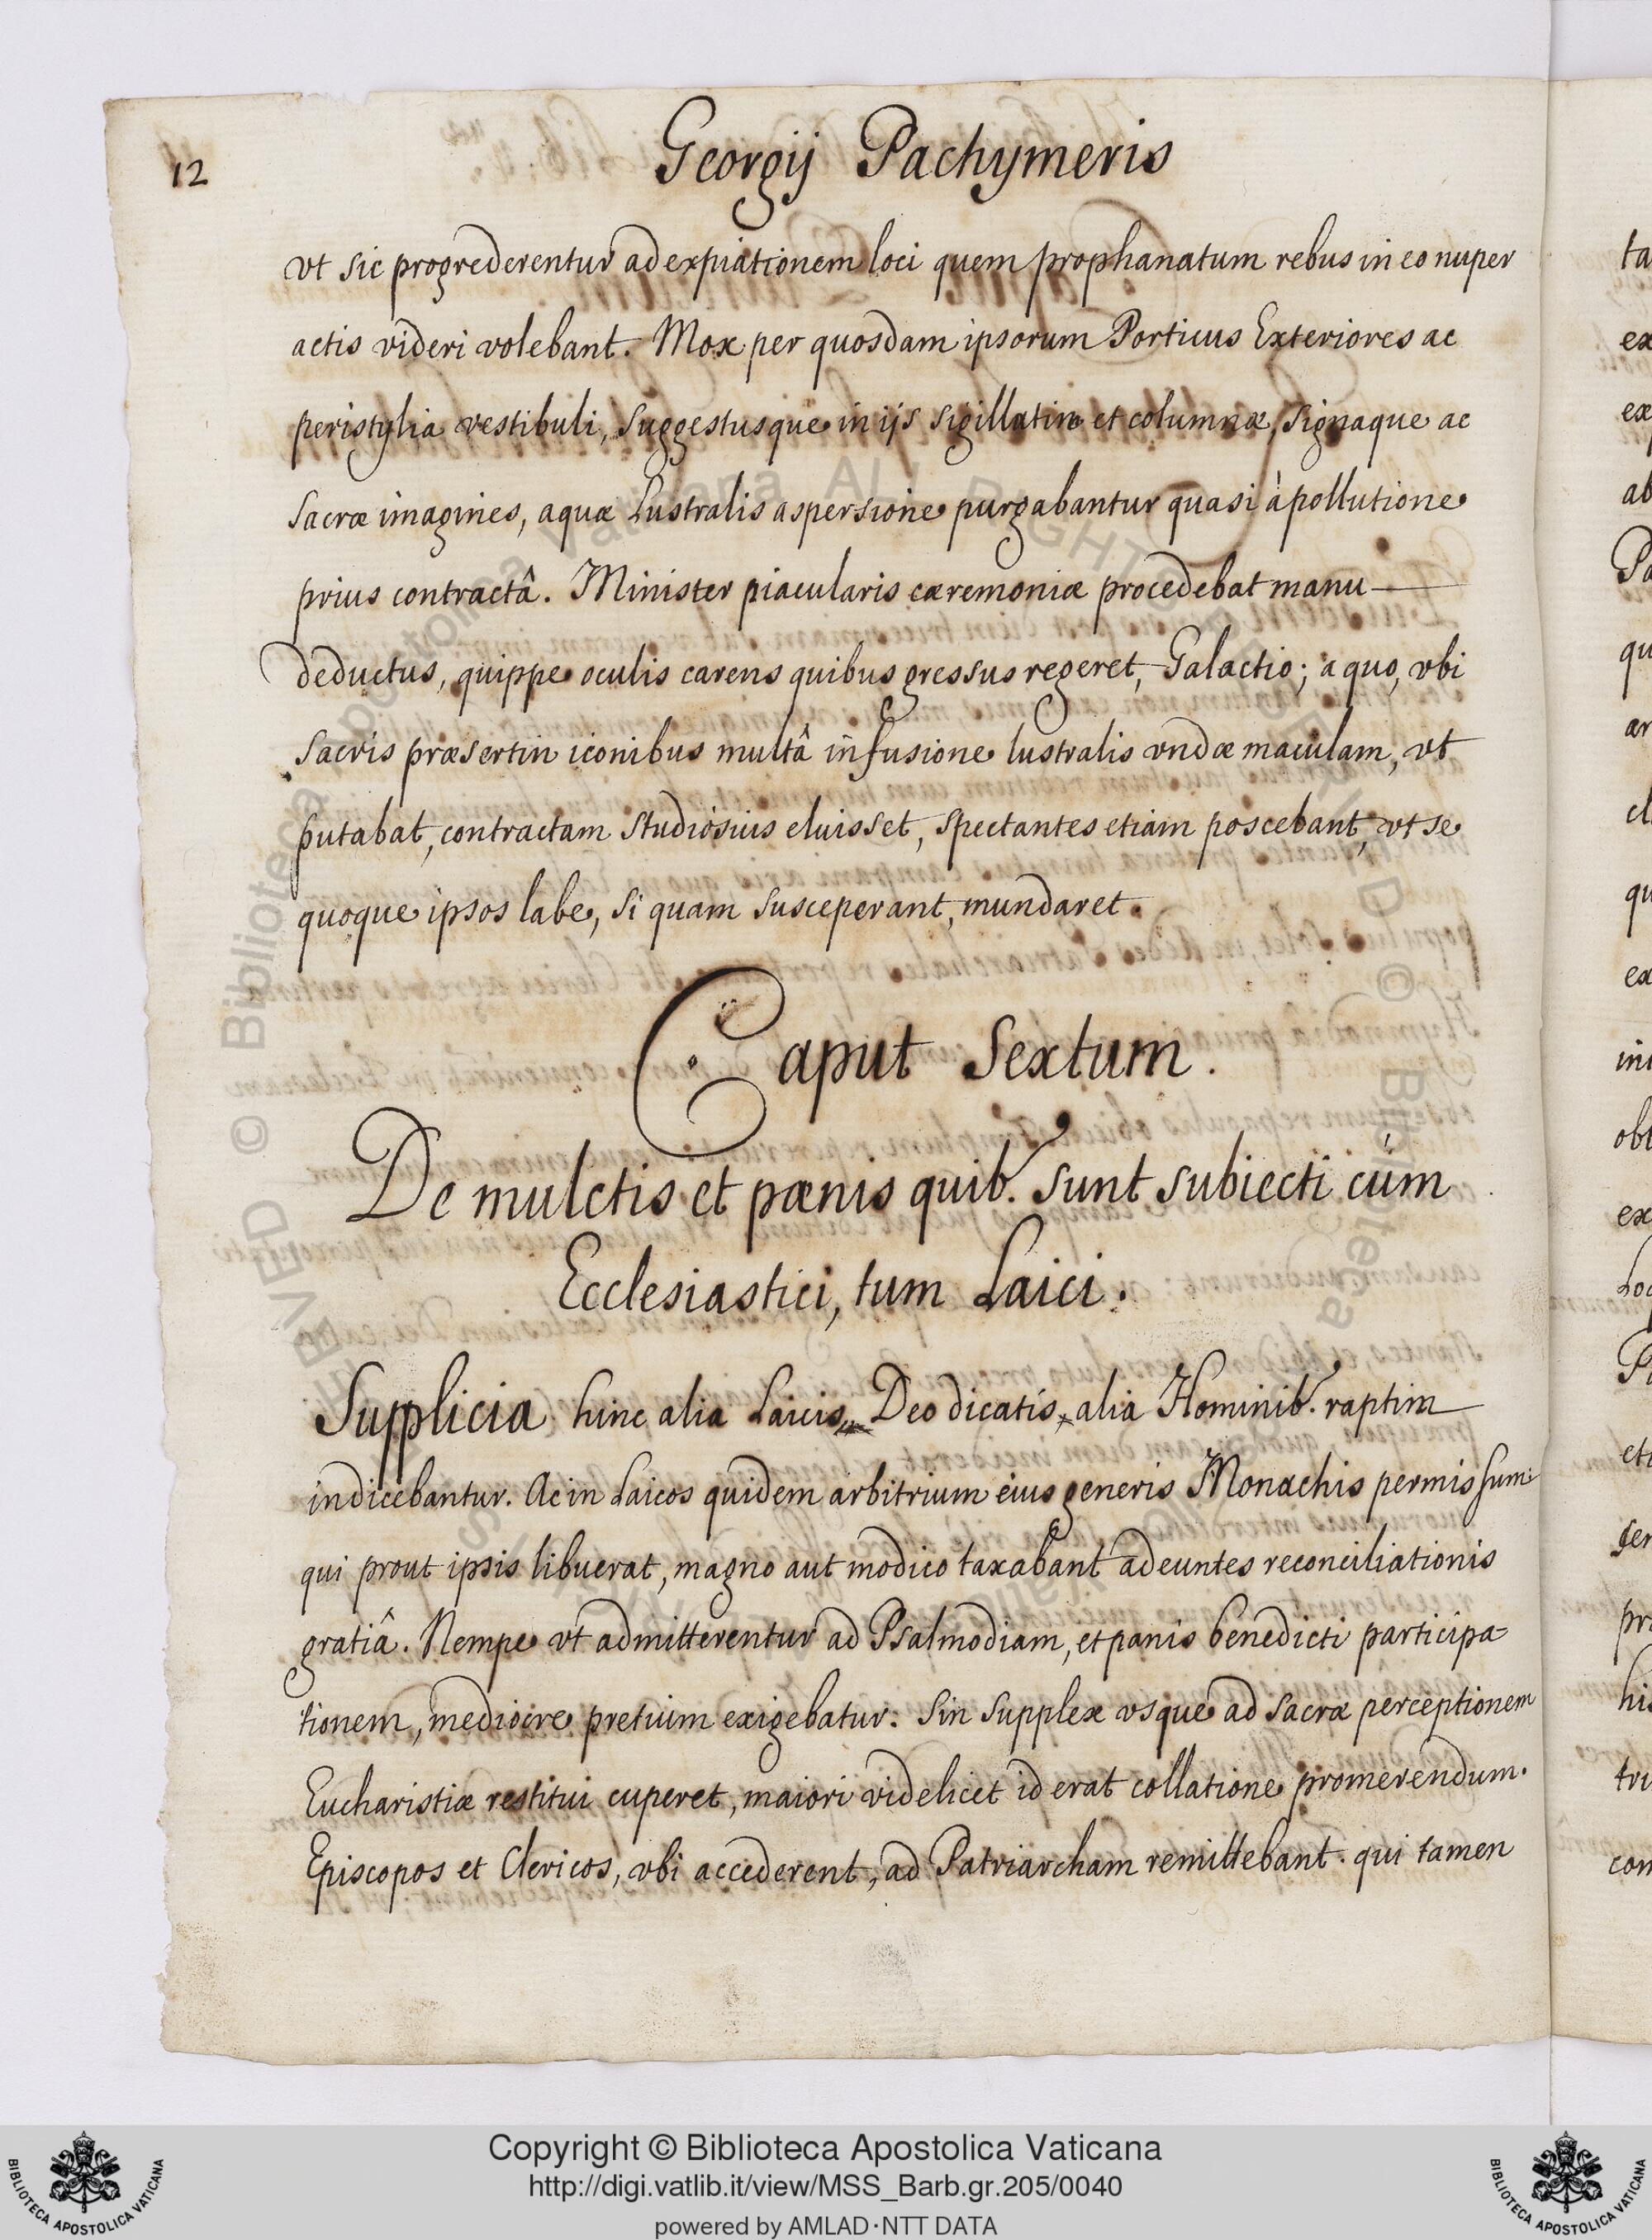 12
Georgij Pachymeris
vt sic progrederentur ad expiationem loci quem prophanatum rebus in eo nuper
actis videri volebant. Mox per quosdam ipsorum Porticus Exteriores ac
peristylia vestibuli, suggestusque in ijs sigillatim et columnæ, signaque ac
sacræ imagines, aquæ Lustralis aspersione purgabantur quasi à pollutione
prius contractâ. Minister piacularis cæremoniæ procedebat manu
deductus, quippe oculis carens quibus gressus regeret, Galactio; a quo, vbi
sacris præsertin iconibus multâ infusione lustralis vndæ maculam, vt
putabat, contractam studiosius eluisset, spectantes etiam poscebant, vt se
quoque ipsos labe, si quam susceperant, mundaret.
Caput Sextum.
De mulctis et pœnis quib. sunt subiecti cúm
Ecclesiastici, tum Laici.
Supplicia hinc alia Laicis, Deo dicatis, alia Hominib. raptim
indicebantur. Ac in Laicos quidem arbitrium eius generis Monachis permissum
qui prout ipsis libuerat, magno aut modico taxabant adeuntes reconciliationis
gratiâ. Nempe vt admitterentur ad Psalmodiam, et panis benedicti participa=
tionem, mediocre pretium exigebatur. Sin supplex vsque ad sacræ perceptionem
Eucharistiæ restitui cuperet, maiori videlicet id erat collatione promerendum.
Episcopos et Clericos, vbi accederent, ad Patriarcham remittebant. qui tamen
Copyright © Biblioteca Apostolica Vaticana
http://digi.vatlib.it/view/MSS_Barb.gr.205/0040
powered by AMLAD·NTT DATA
BIBLIOTECA APOSTOLICA VATICANA
BIBLIOTECA APOSTOLICA VATICANA